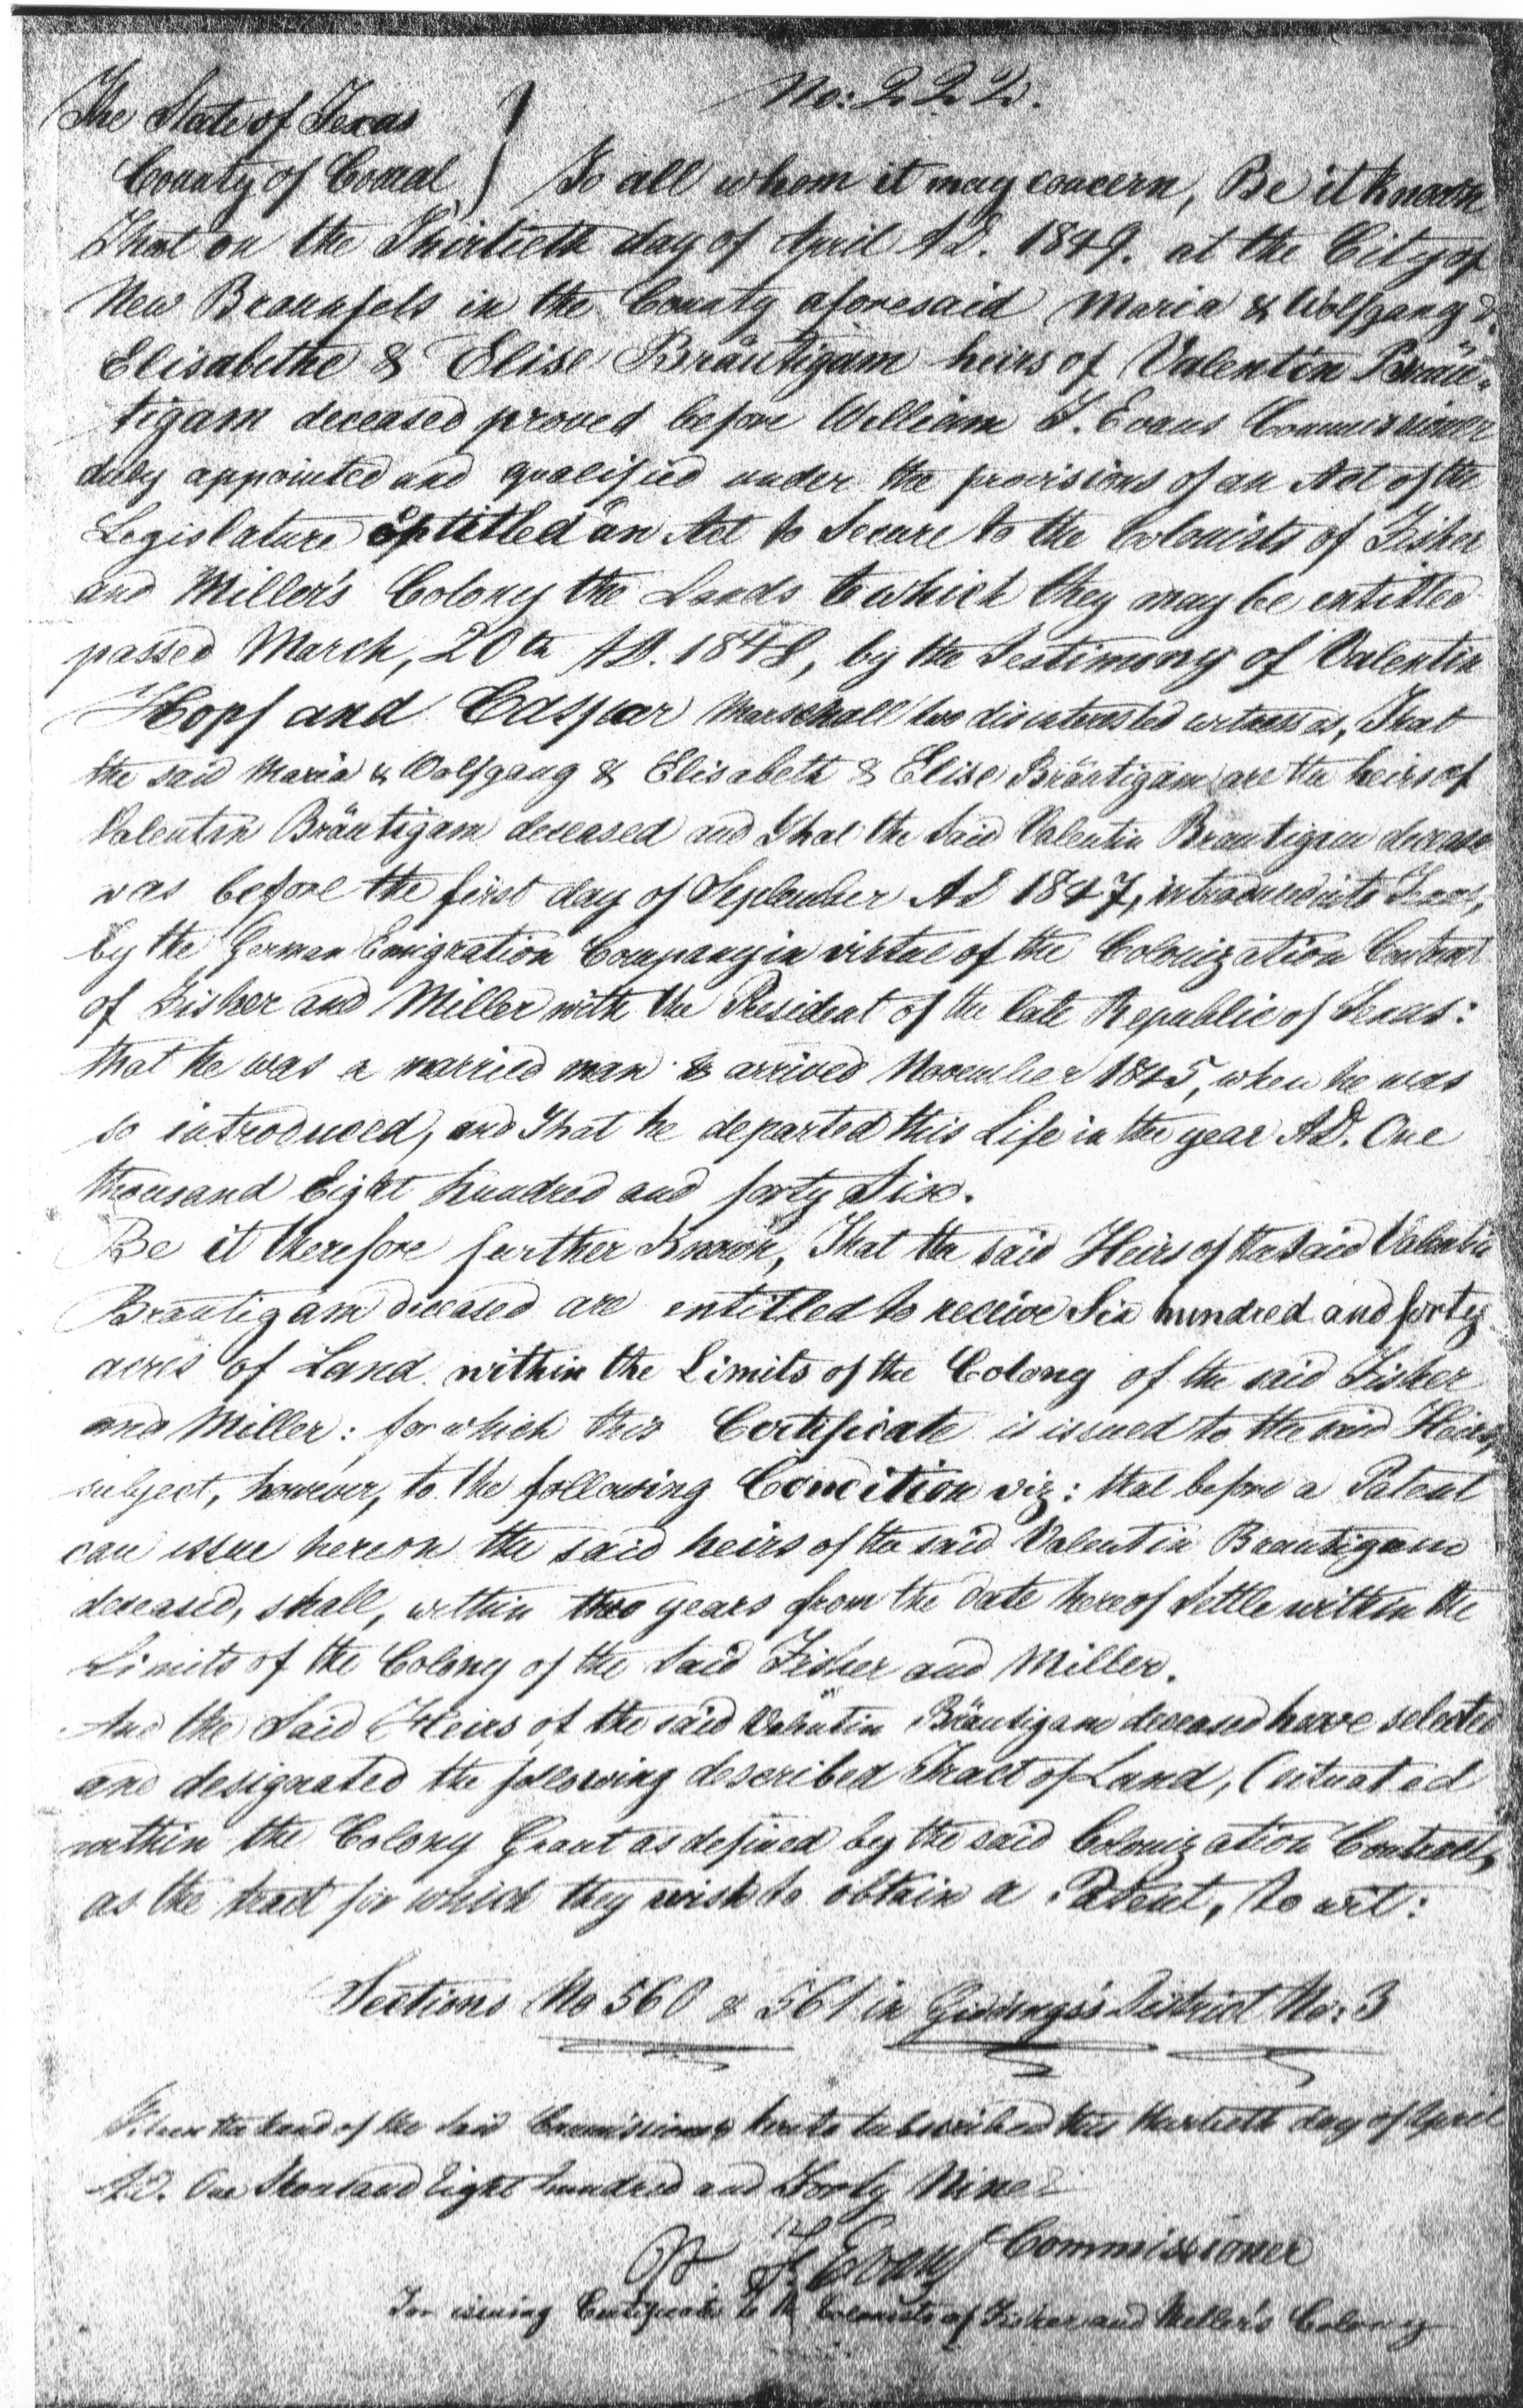 No: 222.
The State of Texas
County of Comal } To all whom it may concern, Be it Known
That on the Thirtieth day of April A.D. 1849. at the City of
New Braunfels in the County aforesaid Maria & Wolfgang &
Elisabethe & Elise Bräutigam heirs of Valentin Bräu-
tigam deceased proved before William F. Evans Commissioner
duly appointed and qualified under the provisions of an Act of the
Legislature entitled an Act to Secure to the Colonists of Fisher
and Miller's Colony the Lands to which they may be entitled
passed March, 20th AD. 1848, by the Testimony of Valentin
Hopf and Caspar Marschall two disinterested witnesses, That
the said Maria & Wolfgang & Elisabeth & Elise Bräutigam are the heirs of
Valentin Bräutigam deceased and that the said Valentin Brautigam decease
was before the first day of September AD 1847, introduced into Texas,
by the German Emigration Company in virtue of the Colonization Contract
of Fisher and Miller with the President of the late Republic of Texas:
that he was a married man & arrived November 1845, when he was
so introduced, and That he departed this Life in the year AD. One
thousand Eight hundred and forty Six.
Be it therefore further Known, That the said Heirs of the said Valentin
Brautigam deceased are entitled to receive Six hundred and forty
acres of Land within the Limits of the Colony of the said Fisher
and Miller: for which this Certificate is issued to the said Heirs,
subject, however, to the following Condition viz: that before a Patent
can issue hereon the said heirs of the said Valentin Brautigam
deceased, shall, within two years from the date hereof Settle within the
Limits of the Colony of the said Fisher and Miller.
And the Said Heirs of the said Valentin Bräutigam deceased have selected
and designated the following described Tract of Land, (situated
within the Colony Grant as defined by the said Colonization Contract,
as the tract for which they wish to obtain a Patent, to wit:
Sections No 560 & 561 in Giddings's District No: 3
Witness the hand of the said Commissioner hereto subscribed this thirtieth day of April
A.D. One Thousand Eight hundred and Forty Nine
W F Evans Commissioner
For issuing Certificate to the Colonists of Fisher and Miller's Colony